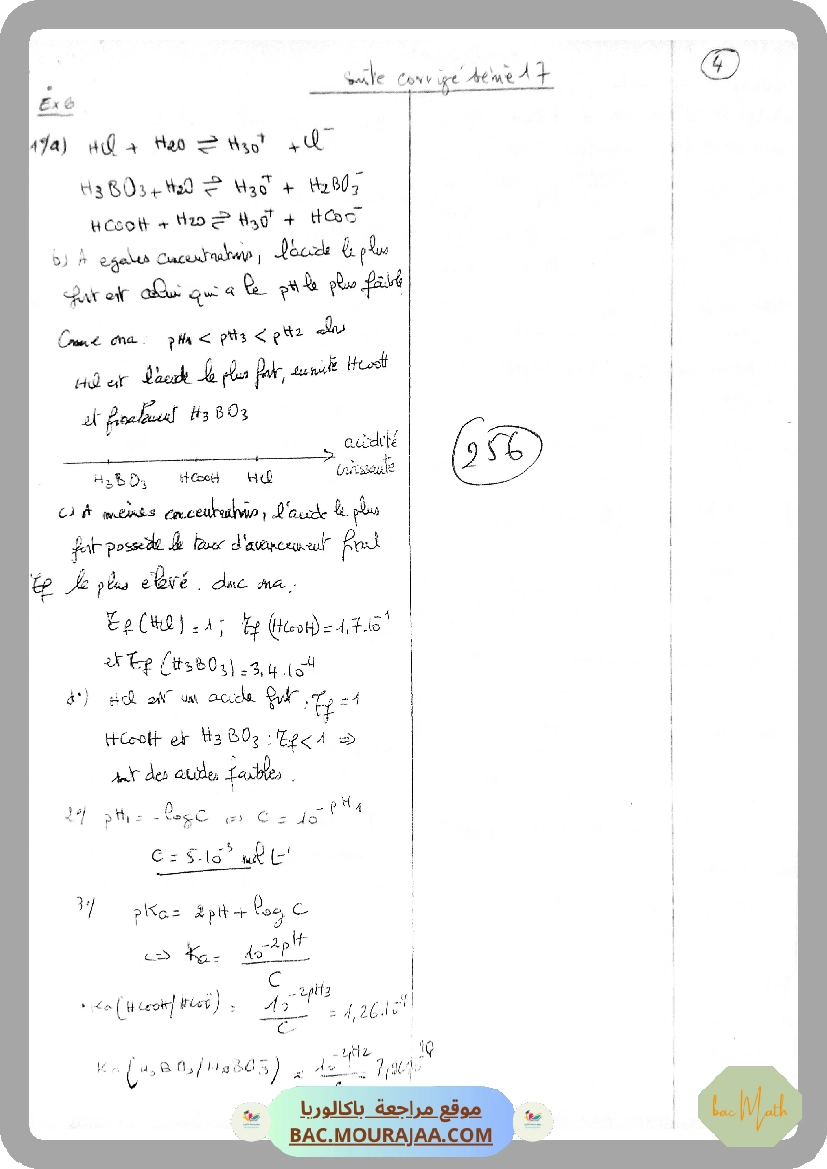 suite corrigé série 17
4
Ex 6
1°/a) HCl + H2O ⇌ H3O+ + Cl-
H3BO3 + H2O ⇌ H3O+ + H2BO3-
HCOOH + H2O ⇌ H3O+ + HCOO-
b) A egales concentrations, l'acide le plus
fort est celui qui a le pH le plus faible
Comme ona : pH1 < pH3 < pH2 alors
HCl est l'acide le plus fort, ensuite HCOOH
et finalement H3BO3
acidité
croissante
H3BO3 HCOOH HCl
c) A mêmes concentrations, l'acide le plus
fort possède le taux d'avancement final
τf le plus elevé. donc ona :
τf (HCl) = 1 ; τf (HCOOH) = 1,7.10^-1
et τf (H3BO3) = 3,4.10^-4
d°) HCl est un acide fort : τf = 1
HCOOH et H3BO3 : τf < 1 ⇒
sont des acides faibles.
2°/ pH1 = -log C ⇔ C = 10^-pH1
C = 5.10^-3 mol L^-1
3°/ pKa = 2pH + log C
⇔ Ka = 10^-2pH / C
• Ka (HCOOH/HCOO-) = 10^-2pH3 / C = 1,26.10^-4
Ka (H3BO3/H2BO3-) = 10^-2pH2
256
موقع مراجعة باكالوريا
BAC.MOURAJAA.COM
bac Math